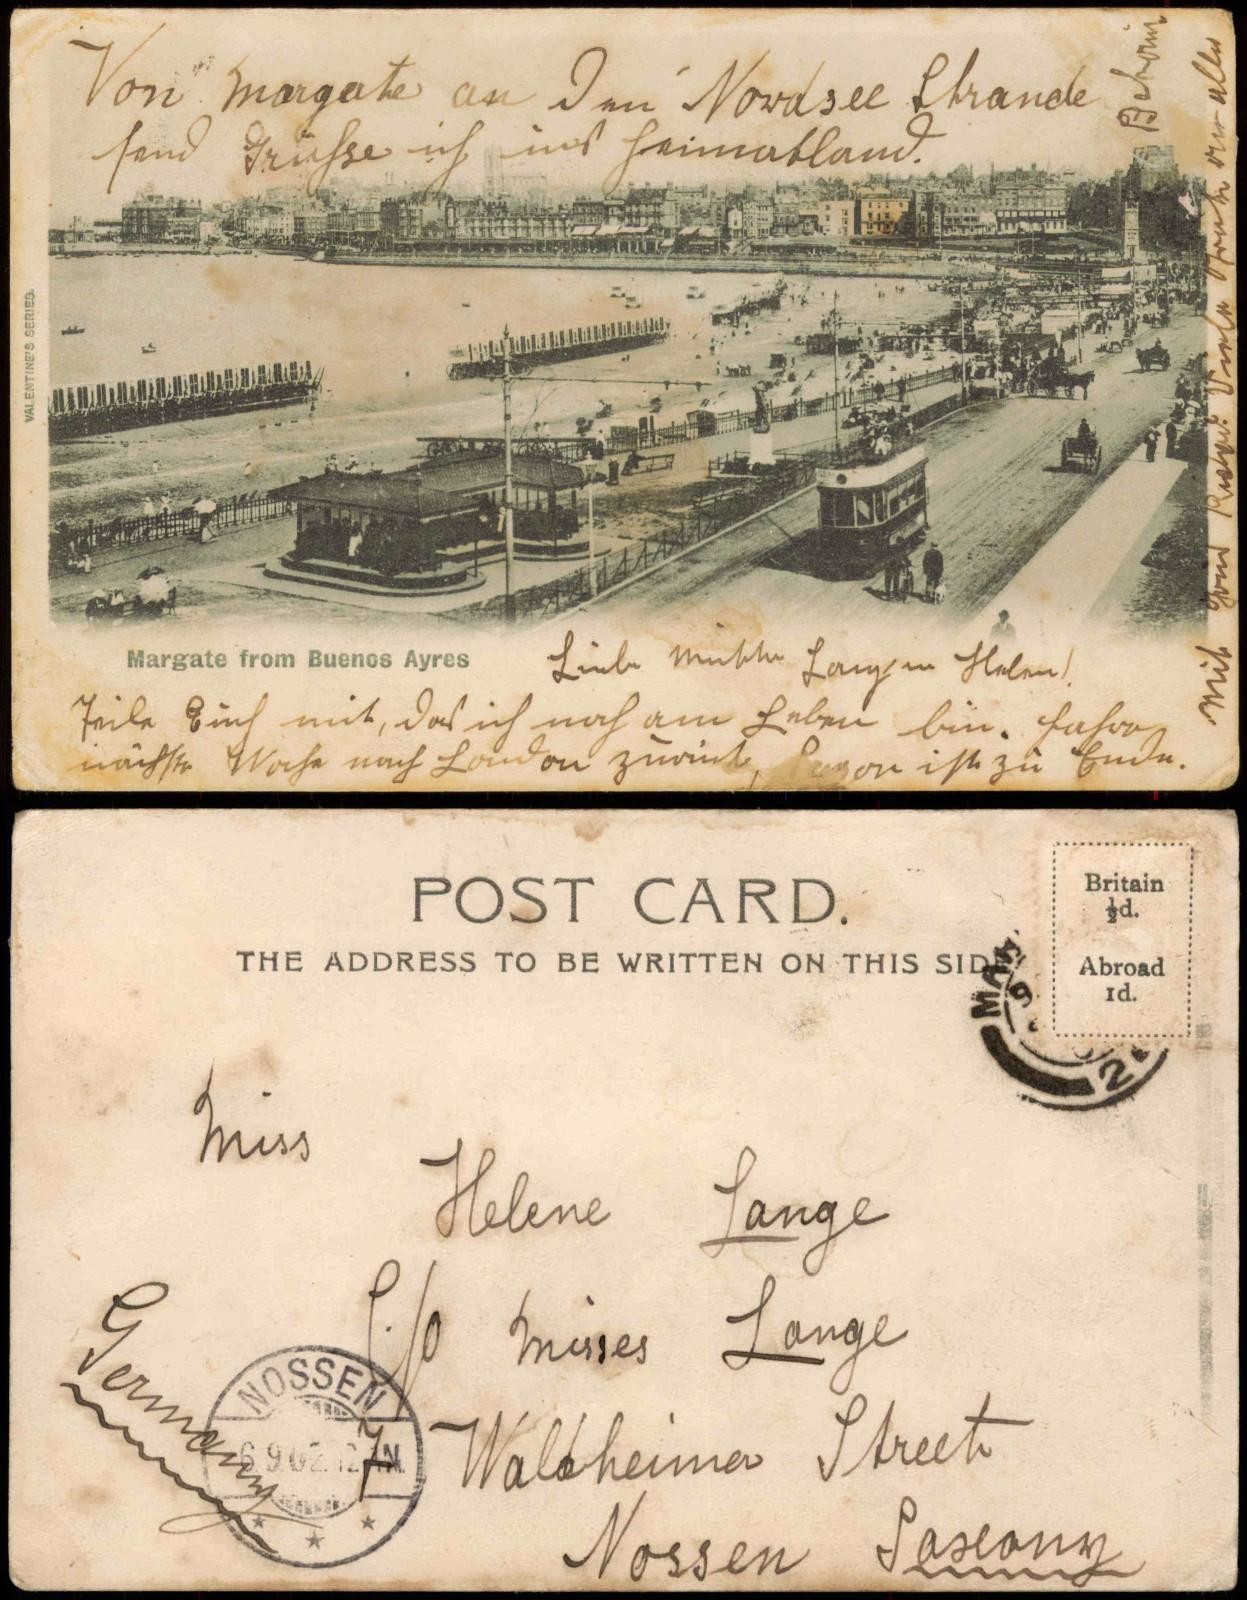 Von Margate an Den Nordsee Strande
send Grüsse ich ins Heimatland.
VALENTINE'S SERIES.
Margate from Buenos Ayres
Liebe Helen!
Teile Euch mit, das ich noch am Leben bin. fahre
nächste Woche nach London zurück, ist zu Ende.
Mit Grüsse alle
POST CARD.
THE ADDRESS TO BE WRITTEN ON THIS SIDE
Britain
½d.
Abroad
1d.
Miss
Helene Lange
C/o Misses Lange
7 Waldheimer Street
Nossen Saxony
Germany
NOSSEN
6.9.02.12-1N.